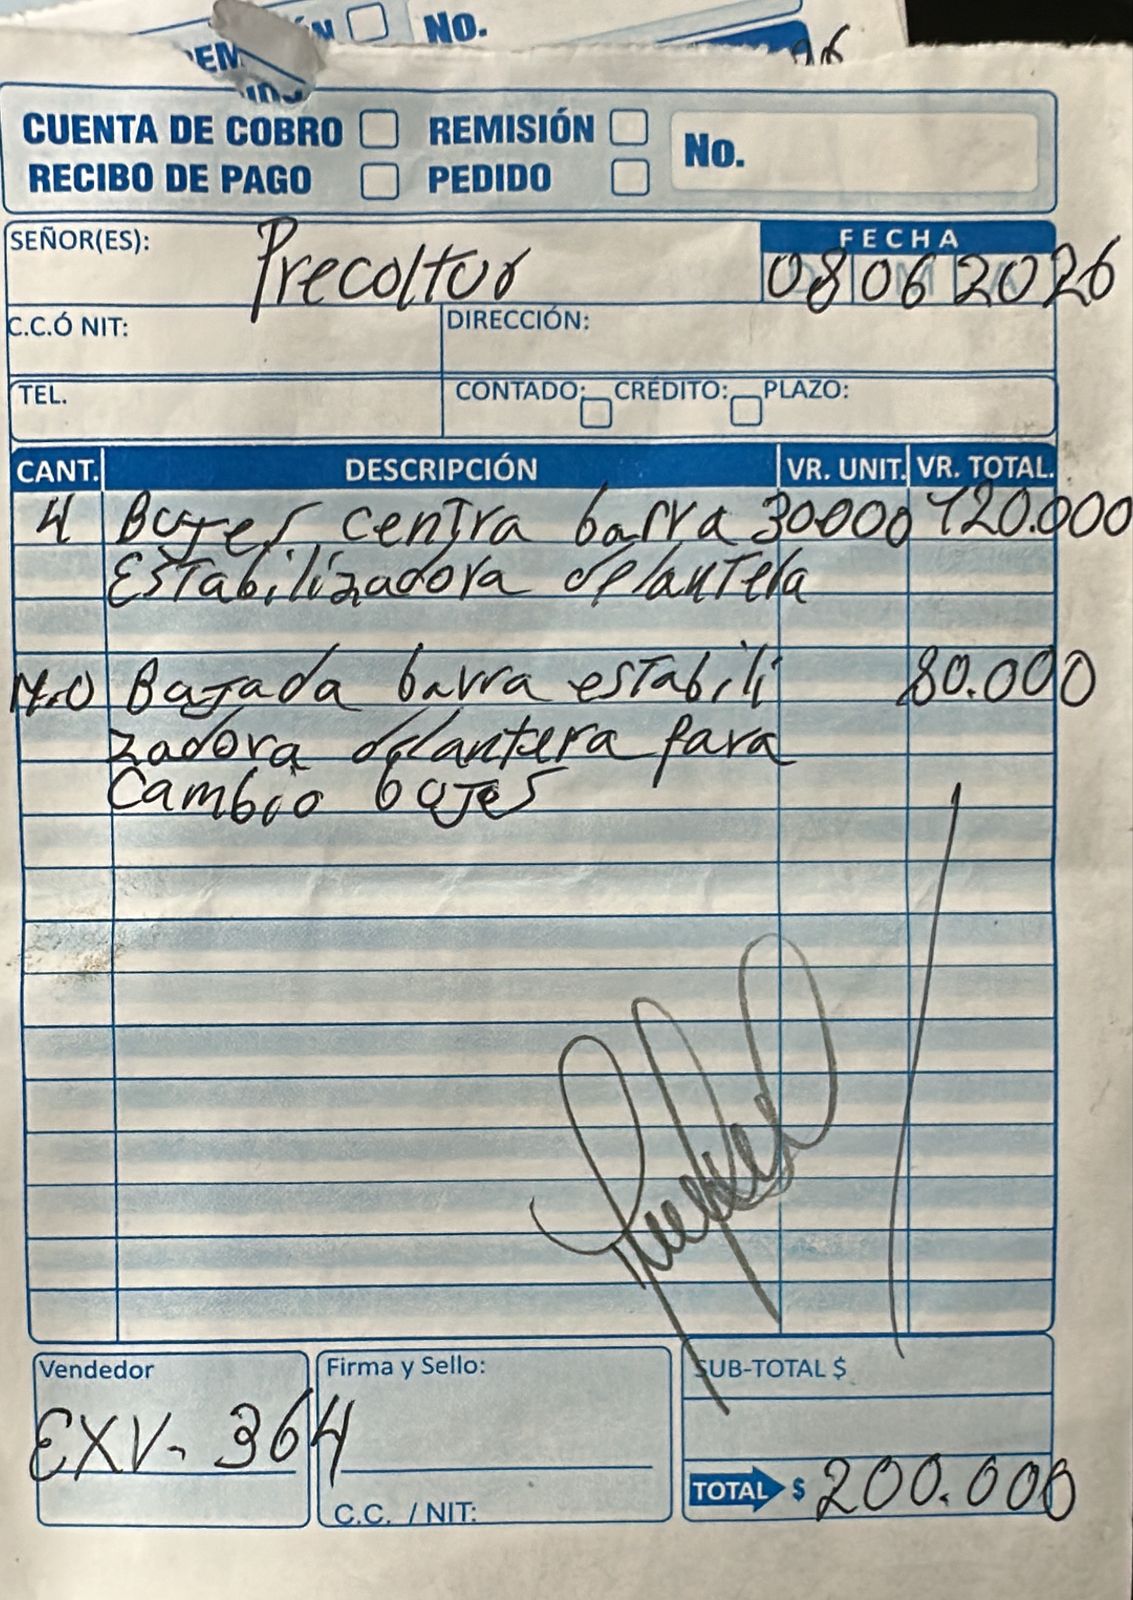 No.
CUENTA DE COBRO REMISIÓN No.
RECIBO DE PAGO PEDIDO
SEÑOR(ES): Precoltur FECHA
08 06 2026
C.C.Ó NIT: DIRECCIÓN:
TEL. CONTADO: CRÉDITO: PLAZO:
CANT. DESCRIPCIÓN VR. UNIT. VR. TOTAL.
4 Bujes centra barra 30000 120.000
Estabilizadora delantera
M.O Bajada barra estabili 80.000
zadora delantera para
Cambio bujes
Vendedor Firma y Sello: SUB-TOTAL $
EXV-364
TOTAL $ 200.000
C.C. / NIT: